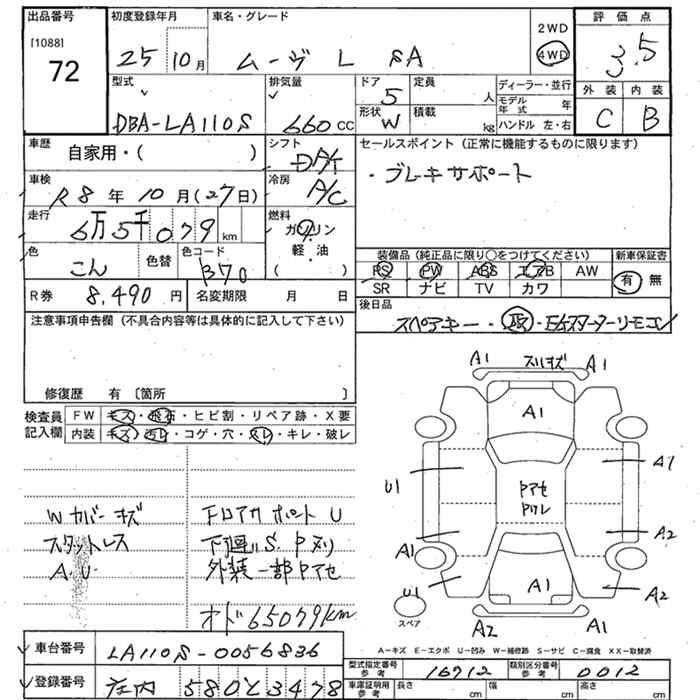 出品番号 初度登録年月 車名・グレード 2WD 評価点
[1088] 72 25 10月 ムーヴ L SA 4WD 3.5
型式 排気量 ドア 定員 ディーラー・並行 外装 内装
DBA-LA110S 660 CC 5 人 モデル年式 年 C B
形状 W 積載 kg ハンドル 左・右
車歴 自家用・( ) シフト DA/T セールスポイント (正常に機能するものに限ります)
車検 R8年10月(27日) 冷房 A/C ・ブレーキサポート
走行 6万5千079km 燃料 ガソリン 軽・油 ( )
色 こん 色替 色コード B70
装備品 (純正品に限り○をつけてください) 新車保証書
PS PW ABS エアB AW 有 無
SR ナビ TV カワ
R券 8,490円 名変期限 月 日 後日品
スペアキー・取・Eスターターリモコン
注意事項申告欄 (不具合内容等は具体的に記入して下さい)
修復歴 有 〔箇所 〕
検査員記入欄 FW キズ・飛石・ヒビ割・リペア跡・X要
内装 キズ・汚レ・コゲ・穴・スレ・キレ・破レ
A1 スリキズ A1
A1
U1 A1
Pアセ
PワレA1 A2
U1 A1 A2
スペア A2 A1
Wカバーキズ フロアサポートU
スタットレス 下廻りS.P刈
A.U 外装一部Pアセ
オド65079km
A-キズ E-エクボ U-凹み W-補修跡 S-サビ C-腐食 XX-取替済
車台番号 LA110S-0056836
型式指定番号 参考 16912 類別区分番号 参考 0012
登録番号 庄内 580と3478
車庫証明用 参考 長さ cm 幅 cm 高さ cm